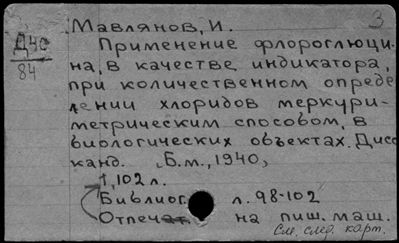 Мавлянов, И. 3
Д40
84
Применение флороглюци-
на, в качестве индикатора,
при количественном опреде
лении хлоридов меркури-
метрическим способом, в
биологических объектах. Дисс
канд. Б.м., 1940,
1, 102 л.
Библиог л. 98-102
Отпечат на пиш. маш.
См. след. карт.